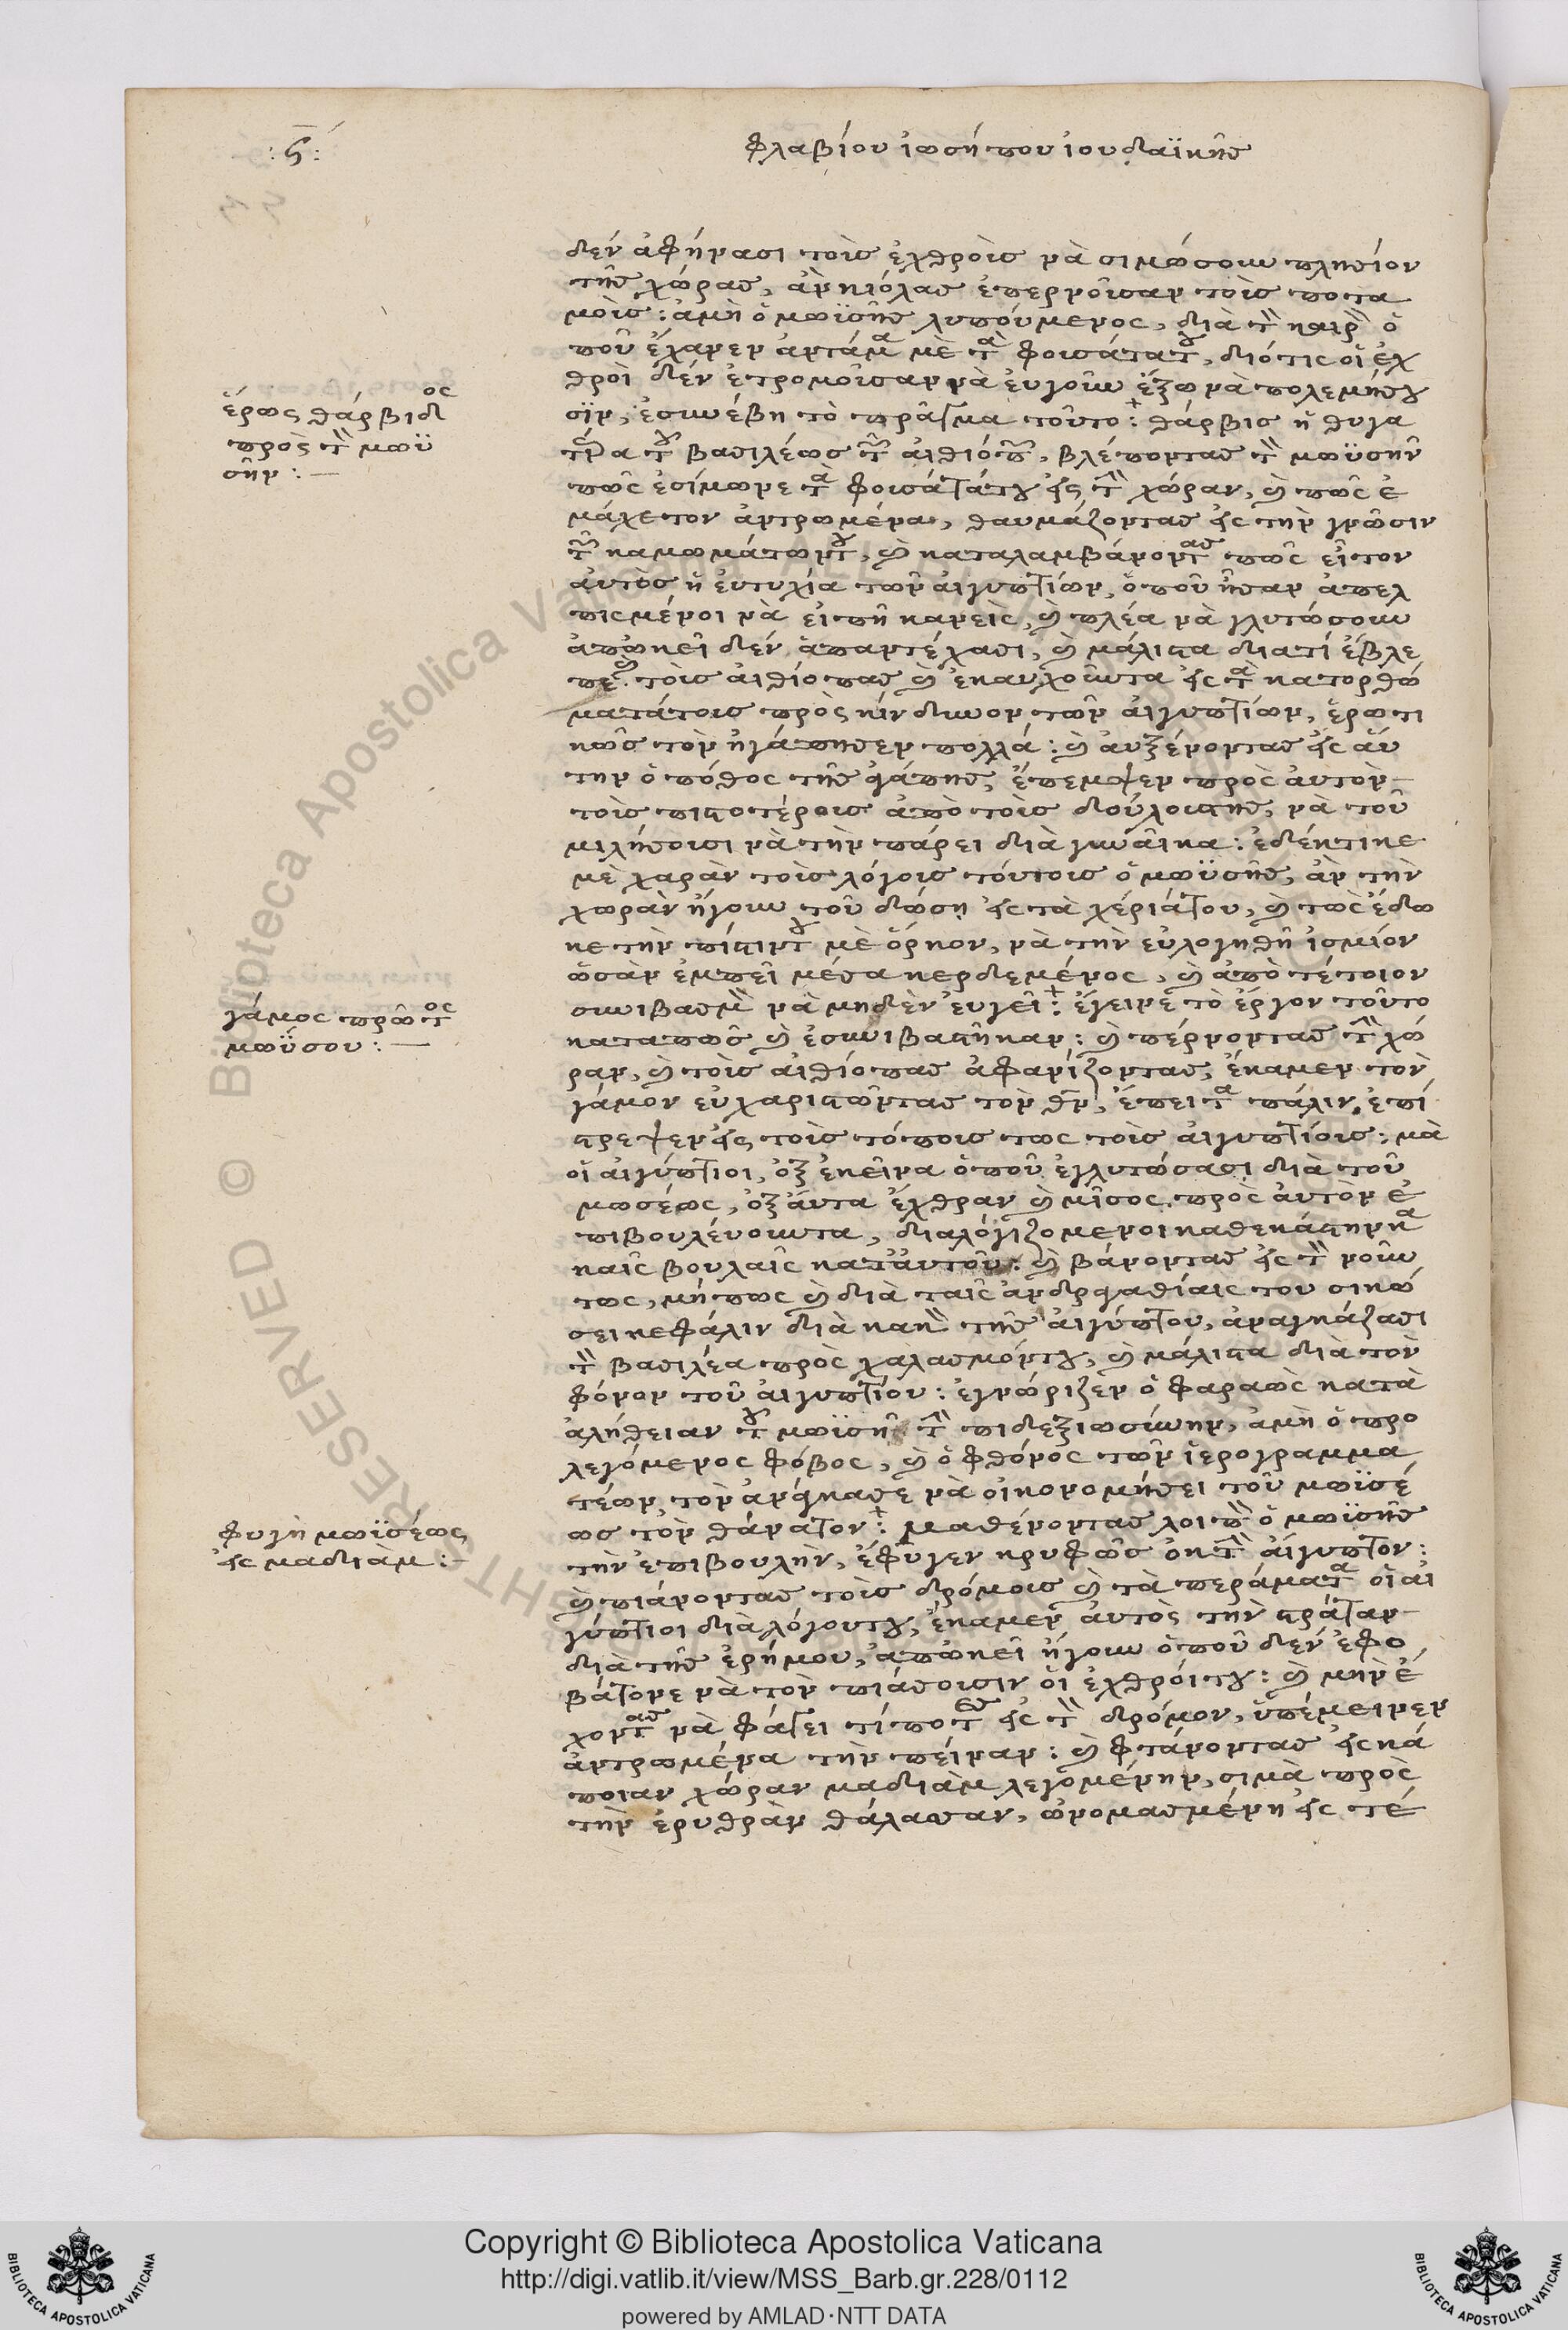 :ς:
φλαβίου ἰωσήπου ἰουδαϊκῆς
δέν ἀφήνασι τοὶς ἐχθροὶς νὰ σιμώσουν πλησίον
τῆς χώρας, ἀν κιόλας ἐπερνοῦσαν τοὶς ποτα
μοὶς: ἀμὴ ὁ μωϋσῆς λυπούμενος, διὰ τ̀ καιρ̀ ὁ
ποῦ ἔχανεν ἀντάμα μὲ τὰ φουσάτατου, διότις οἱ ἐχ
θροὶ δέν ἐτρομοῦσαν νὰ εὐγοῦν ἔξω νὰ πολεμήσου
σϊν, ἐσυνέβη τὸ πρᾶγμα τοῦτο: θάρβις ἡ θυγα
τέρα τοῦ βασιλέως τῶν αἰθιόπων, βλέποντας τ̀ μωϋσῆν
πῶς ἐσίμωνε τὰ φουσάτατου εἰς τ̀ χώραν, καὶ πῶς ἐ
μάχετον ἀντρωμένα, θαυμάζοντας εἰς τὴν γνῶσιν
τῶν καμωμάτωντου, καὶ καταλαμβάνοντας πῶς εἶτον
ἀυτὸς ἡ ἐυτυχία τῶν ἀιγυπτίων, ὁποῦ ἦσαν ἀπελ
πισμένοι νὰ εἰπῆ κανεὶς, καὶ πλέα νὰ γλυτώσουν
ἀπῶκεῖ δέν ἀπαντέχασι, καὶ μάλιστα διατί ἔβλε
πε τοὶς αἰθίοπας καὶ ἐκαυχοῦντα εἰς τὰ κατορθώ
ματάτοις πρὸς κίνδυνον τῶν ἀιγυπτίων, ἐρωτι
κῶς τὸν ἠγάπησεν πολλά: καὶ ἀυξένοντας εἰς ἀύ
την ὁ πόθος τῆς ἀγάπης, ἔπεμψεν πρὸς ἀυτὸν
τοὶς πιστοτέροις ἀπὸ τοὶς δούλοιςτης, νὰ τοῦ
μιλήσουσι νὰ τὴν πάρει διὰ γυναῖκα: ἐδέκτικε
μὲ χαρὰν τοὶς λόγοις τούτοις ὁ μωϋσῆς, ἀν τὴν
χωρὰν ἤγουν τοῦ δώση εἰς τὰ χέριάτου, καὶ τῶς ἔδω
κε τὴν πίστιντου μὲ ὅρκον, νὰ τὴν εὐλογηθῆ ἰσμίον
ὡσὰν ἐμπεῖ μέσα κερδεμένος, καὶ ἀπὸ τέτοιον
συνιβασμ̀ νὰ μηδὲν εὐγεῖ: ἔγειρε τὸ ἔργον τοῦτο
καταπῶς καὶ ἐσυνιβαστῆκαν: καὶ πέρνοντας τ̀ χώ
ραν, καὶ τοὶς αἰθίοπας ἀφανίζοντας, ἔκαμεν τὸν
γάμον εὐχαριστῶντας τὸν θν, ἔπειτα πάλιν ἐπί
στρεψεν εἰς τοὶς τόποις τως τοὶς ἀιγυπτίοις: μὰ
οἱ ἀιγύπτιοι, ὀξ ἐκεῖνα ὁποῦ ἐγλυτώσασι διὰ τοῦ
μωσέως, ὀξ ἀύτα ἔχθραν καὶ μῖσος πρὸς ἀυτὸν ἐ
πιβουλέυουντα, διαλογιζομενοι καθεκάστην κα
καῖς βουλαῖς κατ' ἀυτοῦ: καὶ βάνοντας εἰς τ̀ νοῦν
τως, μήπως καὶ διὰ ταῖς ἀνδραγαθίαις του σικώ
σει κεφάλιν διὰ κακ̀ τῆς ἀιγύπτου, ἀναγκάζασι
τ̀ βασιλέα πρὸς χαλασμόντου, καὶ μάλιστα διὰ τὸν
φόνον τοῦ ἀιγυπτίου: ἐγνώριζεν ὁ φαραὼς κατὰ
ἀλήθειαν τοῦ μωϊσῆ τ̀ πιδεξιωσύνην, ἀμὴ ὁ προ
λεγόμενος φόβος, καὶ ὁ φθόνος τῶν ἱερογραμμα
τέων, τὸν ἀνάγκασε νὰ οἰκονομήσει τοῦ μωϊσέ
ως τὸν θάνατον: Μαθένοντας λοιπ̀ ὁ μωϊσῆς
τὴν ἐπιβουλὴν, ἔφυγεν κρυφῶς ὀκ τ̀ ἀίγυπτον:
καὶ πιάνοντας τοὶς δρόμοις καὶ τὰ περάματα οἱ ἀι
γύπτιοι διὰ λόγουτου, ἔκαμεν ἀυτὸς τὴν στράταν
διὰ τῆς ἐρήμου, ἀπῶκεῖ ἤγουν ὁποῦ δέν ἐφο
βάτονε νὰ τὸν πιάσουσιν οἱ ἐχθρόιτου: καὶ μὴν ἔ
χοντας νὰ φάγει τίποτες εἰς τ̀ δρόμον, ὑπέμεινεν
ἀντρωμένα τὴν πεῖναν: καὶ φτάνοντας εἰς κά
ποιαν χώραν μαδιὰμ λεγομένην, σιμὰ πρὸς
τὴν ἐρυθρὰν θάλασσαν, ὠνομασμένη εἰς τέ
ἔρως θάρβιδος
πρὸς τ̀ μωϋ
σῆν:—
γάμος πρῶτος
μωϋσου:—
φυγὴ μωϊσέως
εἰς μαδιὰμ:—
Biblioteca Apostolica Vaticana
RIGHTS RESERVED ©
BIBLIOTECA APOSTOLICA VATICANA
Copyright © Biblioteca Apostolica Vaticana
http://digi.vatlib.it/view/MSS_Barb.gr.228/0112
powered by AMLAD·NTT DATA
BIBLIOTECA APOSTOLICA VATICANA